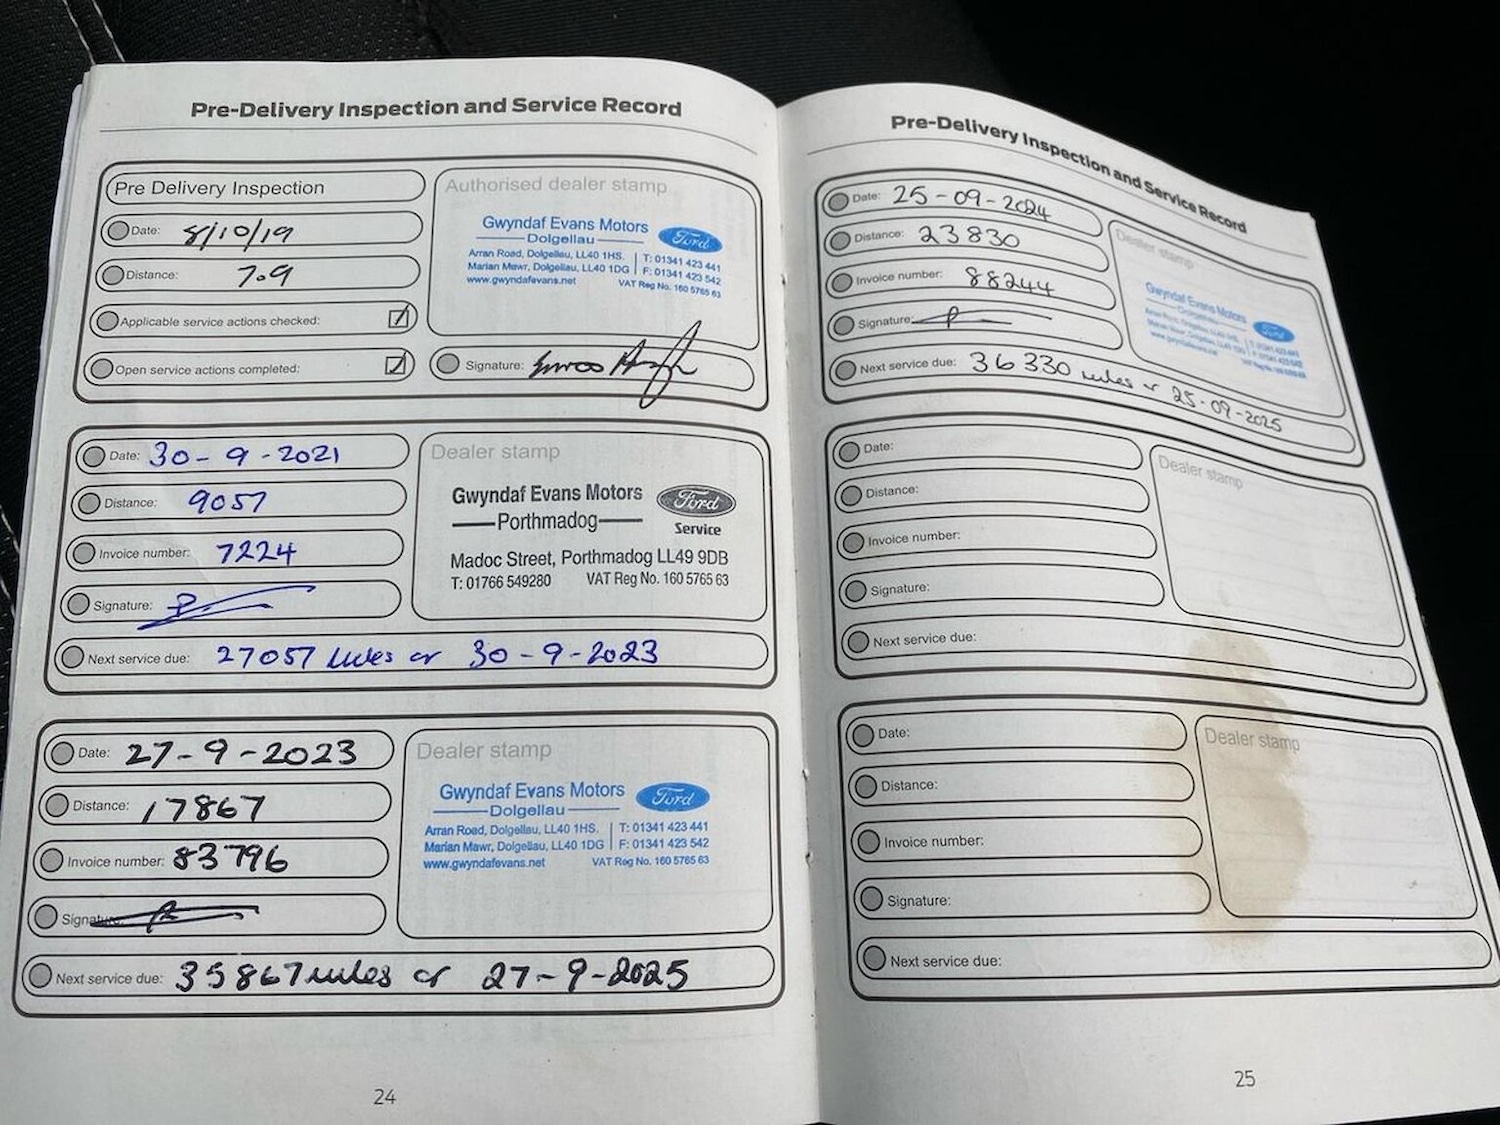 Pre-Delivery Inspection and Service Record
Pre Delivery Inspection
Date: 8/10/19
Distance: 7.9
Applicable service actions checked:
Open service actions completed:
Authorised dealer stamp
Gwyndaf Evans Motors
Dolgellau
Ford
Arran Road, Dolgellau, LL40 1HS. T: 01341 423 441
Marian Mawr, Dolgellau, LL40 1DG F: 01341 423 542
www.gwyndafevans.net VAT Reg No. 160 5765 63
Signature:
Date: 30-9-2021
Distance: 9057
Invoice number: 7224
Signature:
Dealer stamp
Gwyndaf Evans Motors
Porthmadog
Ford
Service
Madoc Street, Porthmadog LL49 9DB
T: 01766 549280 VAT Reg No. 160 5765 63
Next service due: 27057 miles or 30-9-2023
Date: 27-9-2023
Distance: 17867
Invoice number: 83796
Signature:
Dealer stamp
Gwyndaf Evans Motors
Dolgellau
Ford
Arran Road, Dolgellau, LL40 1HS. T: 01341 423 441
Marian Mawr, Dolgellau, LL40 1DG F: 01341 423 542
www.gwyndafevans.net VAT Reg No. 160 5765 63
Next service due: 35867 miles or 27-9-2025
24
Pre-Delivery Inspection and Service Record
Date: 25-09-2024
Distance: 23830
Invoice number: 88244
Signature:
Dealer stamp
Gwyndaf Evans Motors
Dolgellau
Ford
Next service due: 36330 miles or 25-09-2025
Date:
Distance:
Invoice number:
Signature:
Dealer stamp
Next service due:
Date:
Distance:
Invoice number:
Signature:
Dealer stamp
Next service due:
25